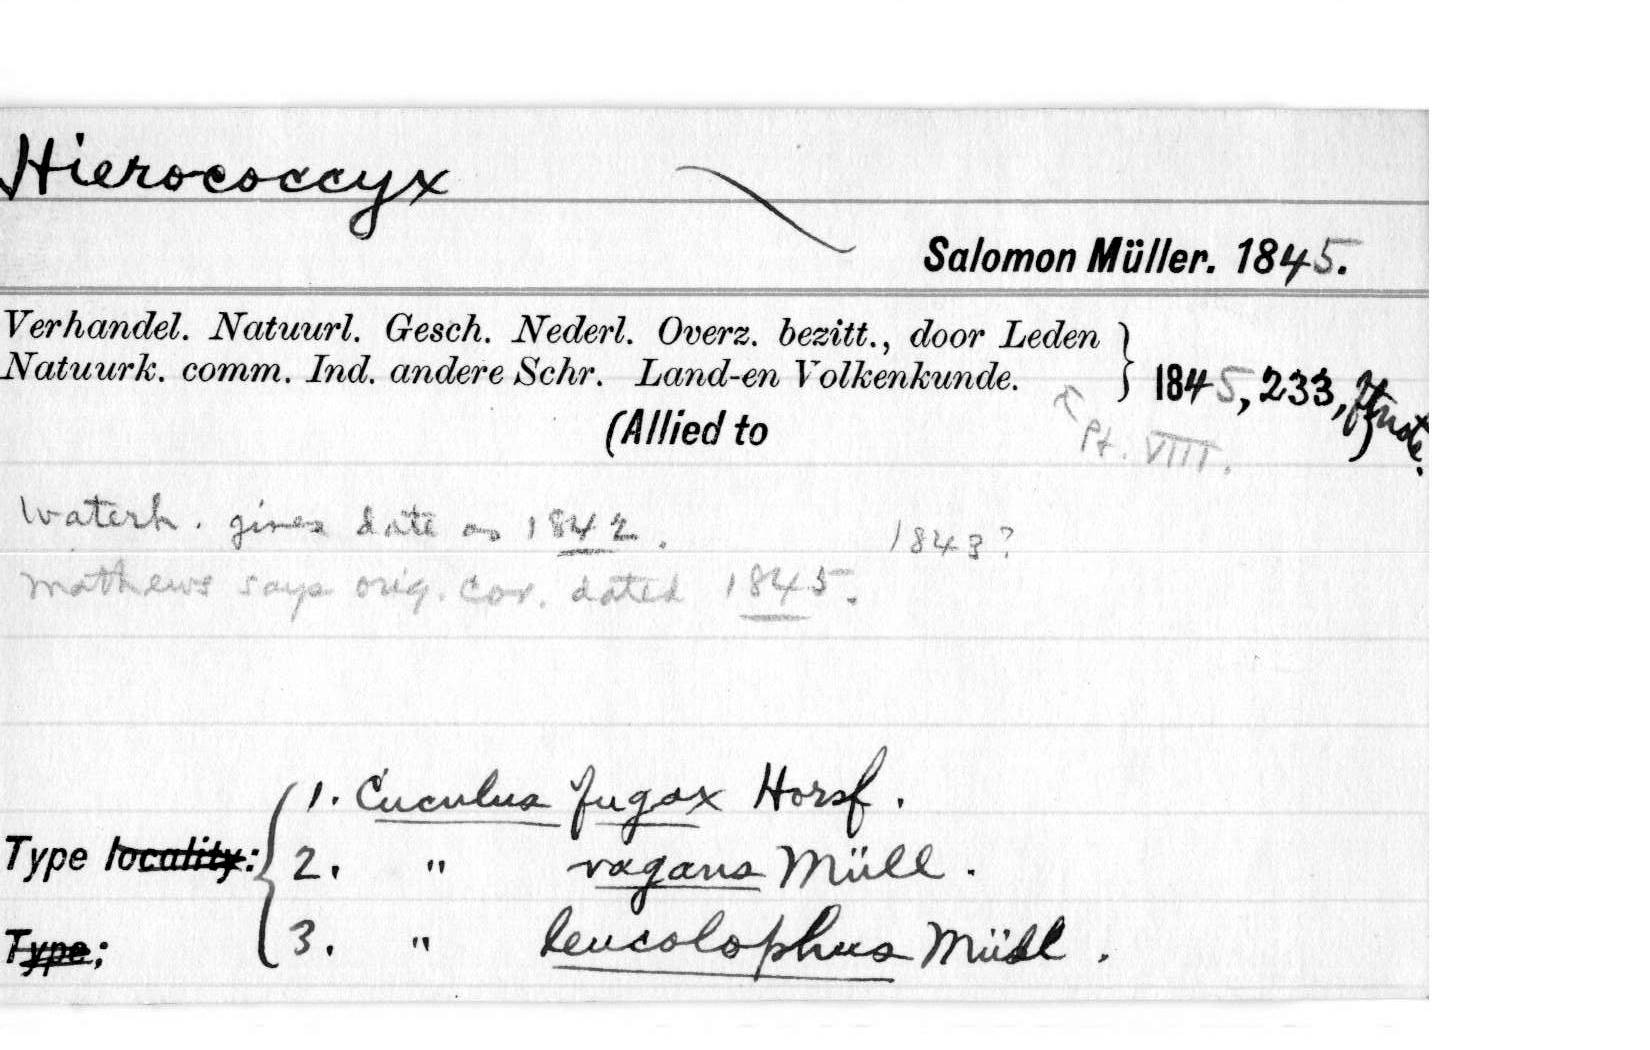 Hierococcyx
Salomon Müller. 1845.
Verhandel. Natuurl. Gesch. Nederl. Overz. bezitt., door Leden
Natuurk. comm. Ind. andere Schr. Land-en Volkenkunde. } 1845, 233, ftnote.
(Allied to
Pt. VIII.
Waterh. gives date as 1842. 1843?
Mathews says orig. cov. dated 1845.
1. Cuculus fugax Horsf.
Type locality: 2. " vagans Müll.
Type: 3. " leucolophus Müll.